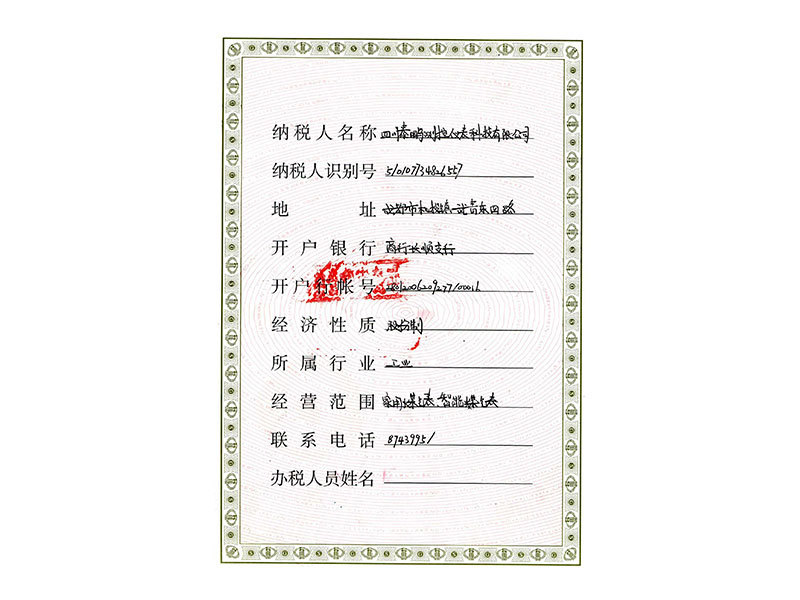 纳税人名称 四川泰鹏测控仪表科技有限公司
纳税人识别号 510107734826557
地址 成都市机投镇 东四路
开户银行 商行长顺支行
开户行帐号
经济性质 股份制
所属行业 工业
经营范围 家用煤气表、智能煤气表
联系电话 87439951
办税人员姓名